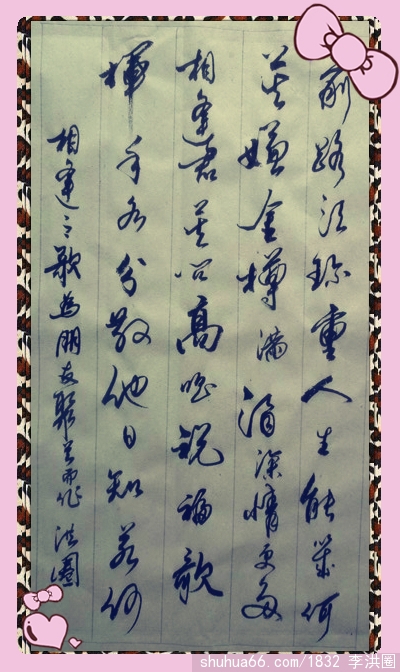 前路须珍重人生能几何
莫嫌金樽满酒深情更多
相逢君莫问高唱祝福歌
挥手各分散他日知若何
相逢之歌为朋友聚会而作 洪圈
shuhua66.com/1832 李洪圈